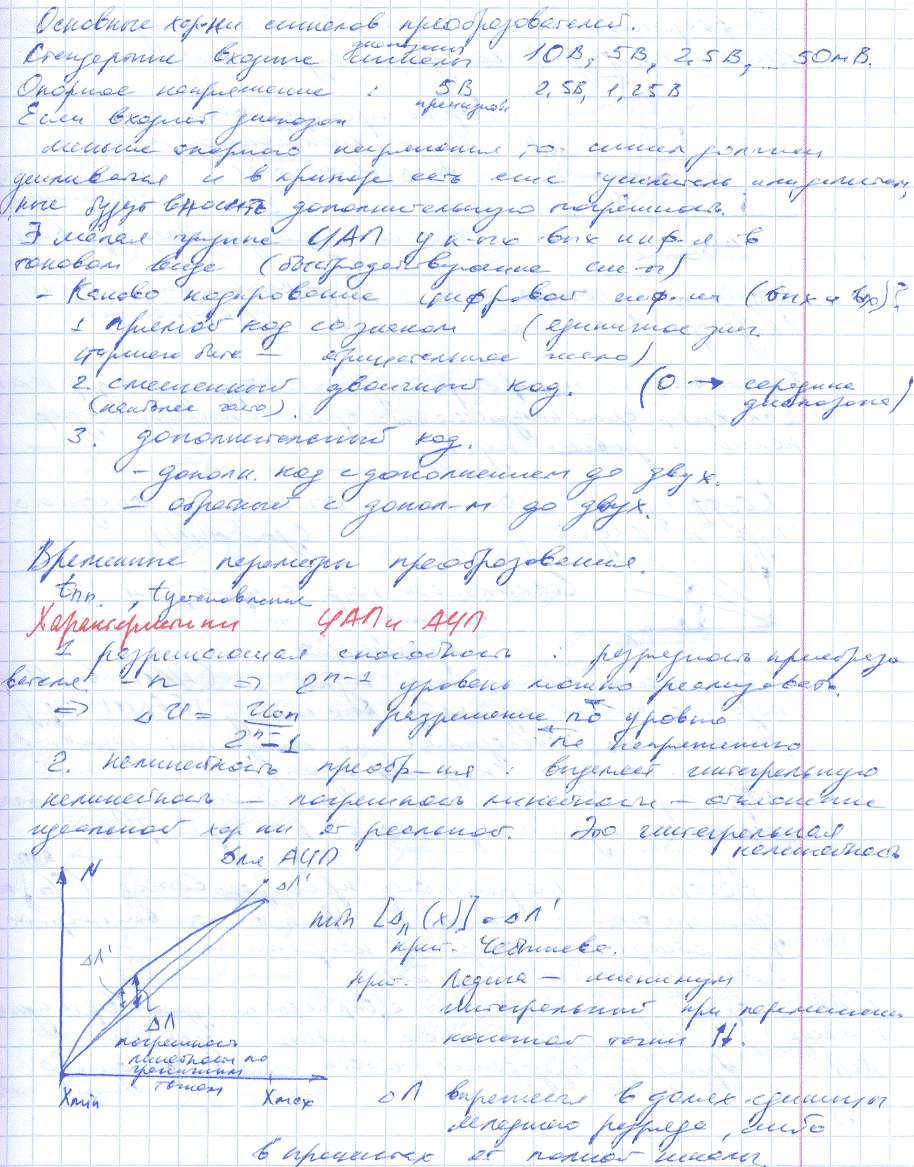 Основные хар-ки сигналов преобразователей.
диапазоны
Стандартные входные сигналы 10В, 5В, 2,5В, ... 50мВ.
Опорное напряжение : 5В 2,5В, 1,25В
прецизион
Если входной диапазон
меньше опорного напряжения, то сигнал должен
усиливаться и в приборе есть еще усилитель,
рые будут вносить дополнительную погрешность.
∃ малая группа ЦАП у к-го вых инф-я в
токовом виде (быстродействующие сис-мы)
– Каково кодирование цифровой инф-ии (вых и вх)?
1 прямой код со знаком (единичное знач
старшего бита – отрицательное число)
2. смещенный двоичный код. (0 → середина
(наиболее часто). диапазона)
3. дополнительный код.
– дополн. код с дополнением до двух.
– обратный с допол-м до двух.
Временные параметры преобразования.
tпр. , tустановления
Характеристики ЦАП и АЦП
1 разрешающая способность : разрядность преобразо
вателя – n ⇒ 2ⁿ⁻¹ уровень можно реализовать.
⇒ ΔU = Uоп / 2ⁿ–1 разрешение по уровню
по напряжению
2. нелинейность преобр-ия : выделяет интегральную
нелинейность – погрешность линейности – отклонение
идеальной хар-ки от реальной. Это интегральная
нелинейность
Для АЦП
N
Δл'
min [Δл(x)] = Δл'
крит. Чебышева.
Δл'
крит. – минимум
интегральный при перемещении
конечной точки ↑↓.
Δл
погрешность
линейности по
граничным
точкам
Xmin Xmax
Δл выражается в долях единицы
младшего разряда, либо
в процентах от полной шкалы.